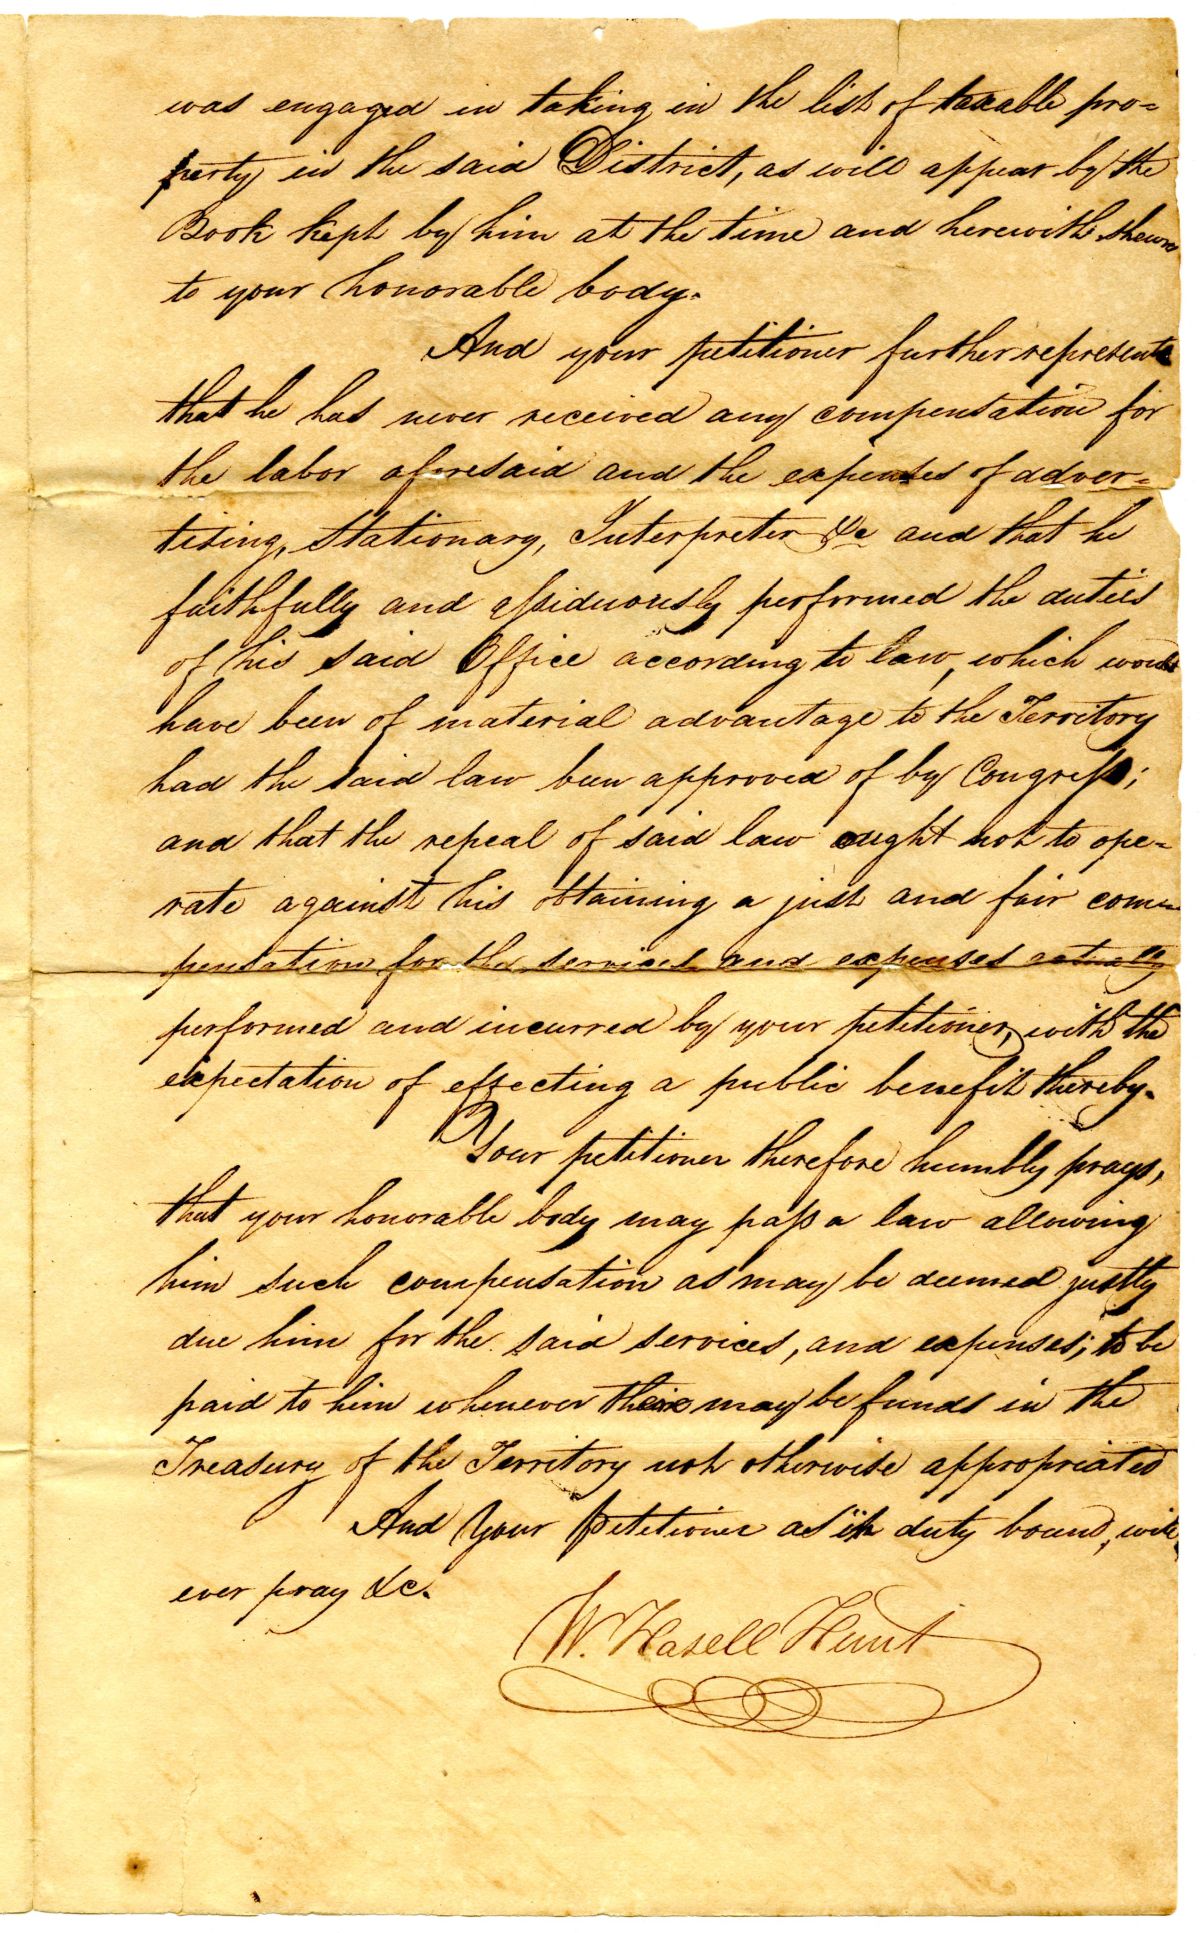 was engaged in taking in the list of taxable pro=
perty in the said District, as will appear by the
Book kept by him at the time and herewith shewn
to your honorable body.
And your petitioner further represents
that he has never received any compensation for
the labor aforesaid and the expenses of adver=
tising, Stationary, Interpreter &c and that he
faithfully and assiduously performed the duties
of his said Office according to law, which would
have been of material advantage to the Territory
had the said law been approved of by Congress;
and that the repeal of said law ought not to ope=
rate against his obtaining a just and fair com=
pensation for the services and expenses actually
performed and incurred by your petitioner, with the
expectation of effecting a public benefit thereby.
Your petitioner therefore humbly prays,
that your honorable body may pass a law allowing
him such compensation as may be deemed justly
due him for the said services, and expenses; to be
paid to him whenever there may be funds in the
Treasury of the Territory not otherwise appropriated
And Your Petitioner as in duty bound, will
ever pray &c.
W. Hasell Hunt